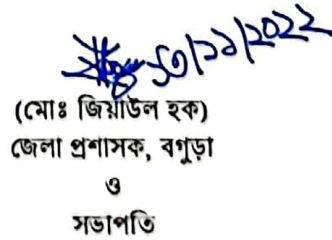 ১৩/১১/২০২২
(মোঃ জিয়াউল হক)
জেলা প্রশাসক, বগুড়া
ও
সভাপতি